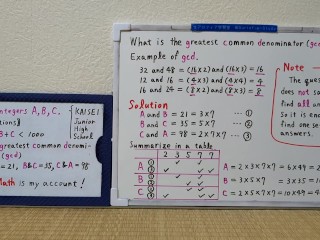 ntegers A, B, C.
KAISEI
Junior
High
School
ations]
B+C < 1000
greatest common denomi-
(gcd)
= 21, B&C=35, C&A=98
Math is my account!
What is the greatest common denominator (gc
Example of gcd.
32 and 48 = (16×2) and (16×3) = 16
12 and 16 = (4×3) and (4×4) = 4
16 and 24 = (8×2) and (8×3) = 8
Solution
A and B = 21 = 3×7 --- ①
B and C = 35 = 5×7 --- ②
C and A = 98 = 2×7×7 --- ③
Summarize in a table
2 3 5 7 7
A ①
③
B ①
②
C ②
③
A = 2×3×7×7 = 6×49 = 2
B = 3×5×7 = 3×35 = 10
C = 2×5×7×7 = 10×49 = 4
Note
The que
does n
find all an
So it is en
find one se
answers.